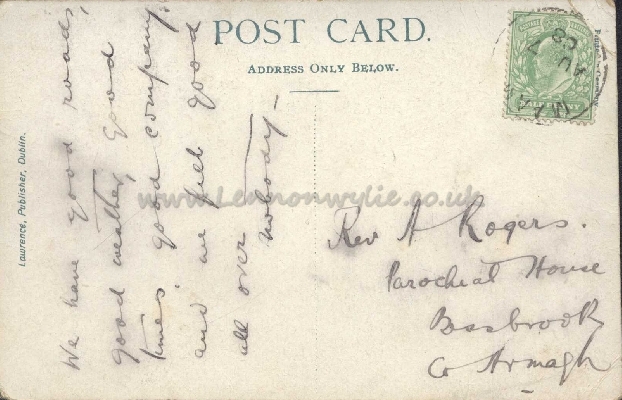 POST CARD.
ADDRESS ONLY BELOW.
We have good roads,
good weather, good
times. good company.
and we feel good
all over nobody —
Rev A Rogers.
Parochial House
Bessbrook
Co Armagh
Lawrence, Publisher, Dublin.
HALFPENNY
www.Lennonwylie.co.uk